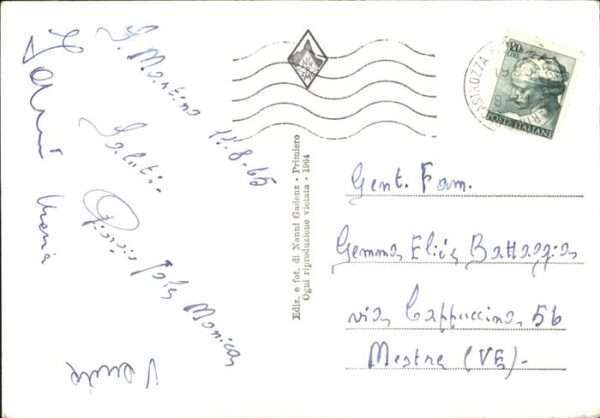 S. Martino 14.8.65
Saluti
Giorgio Monica
Maria
Ediz. e fot. di Nanni Gadenz - Primiero
Ogni riproduzione vietata - 1964
POSTE ITALIANE
Gent. Fam.
Gemma Elia Battaggia
via Cappuccina 56
Mestre (VE)-